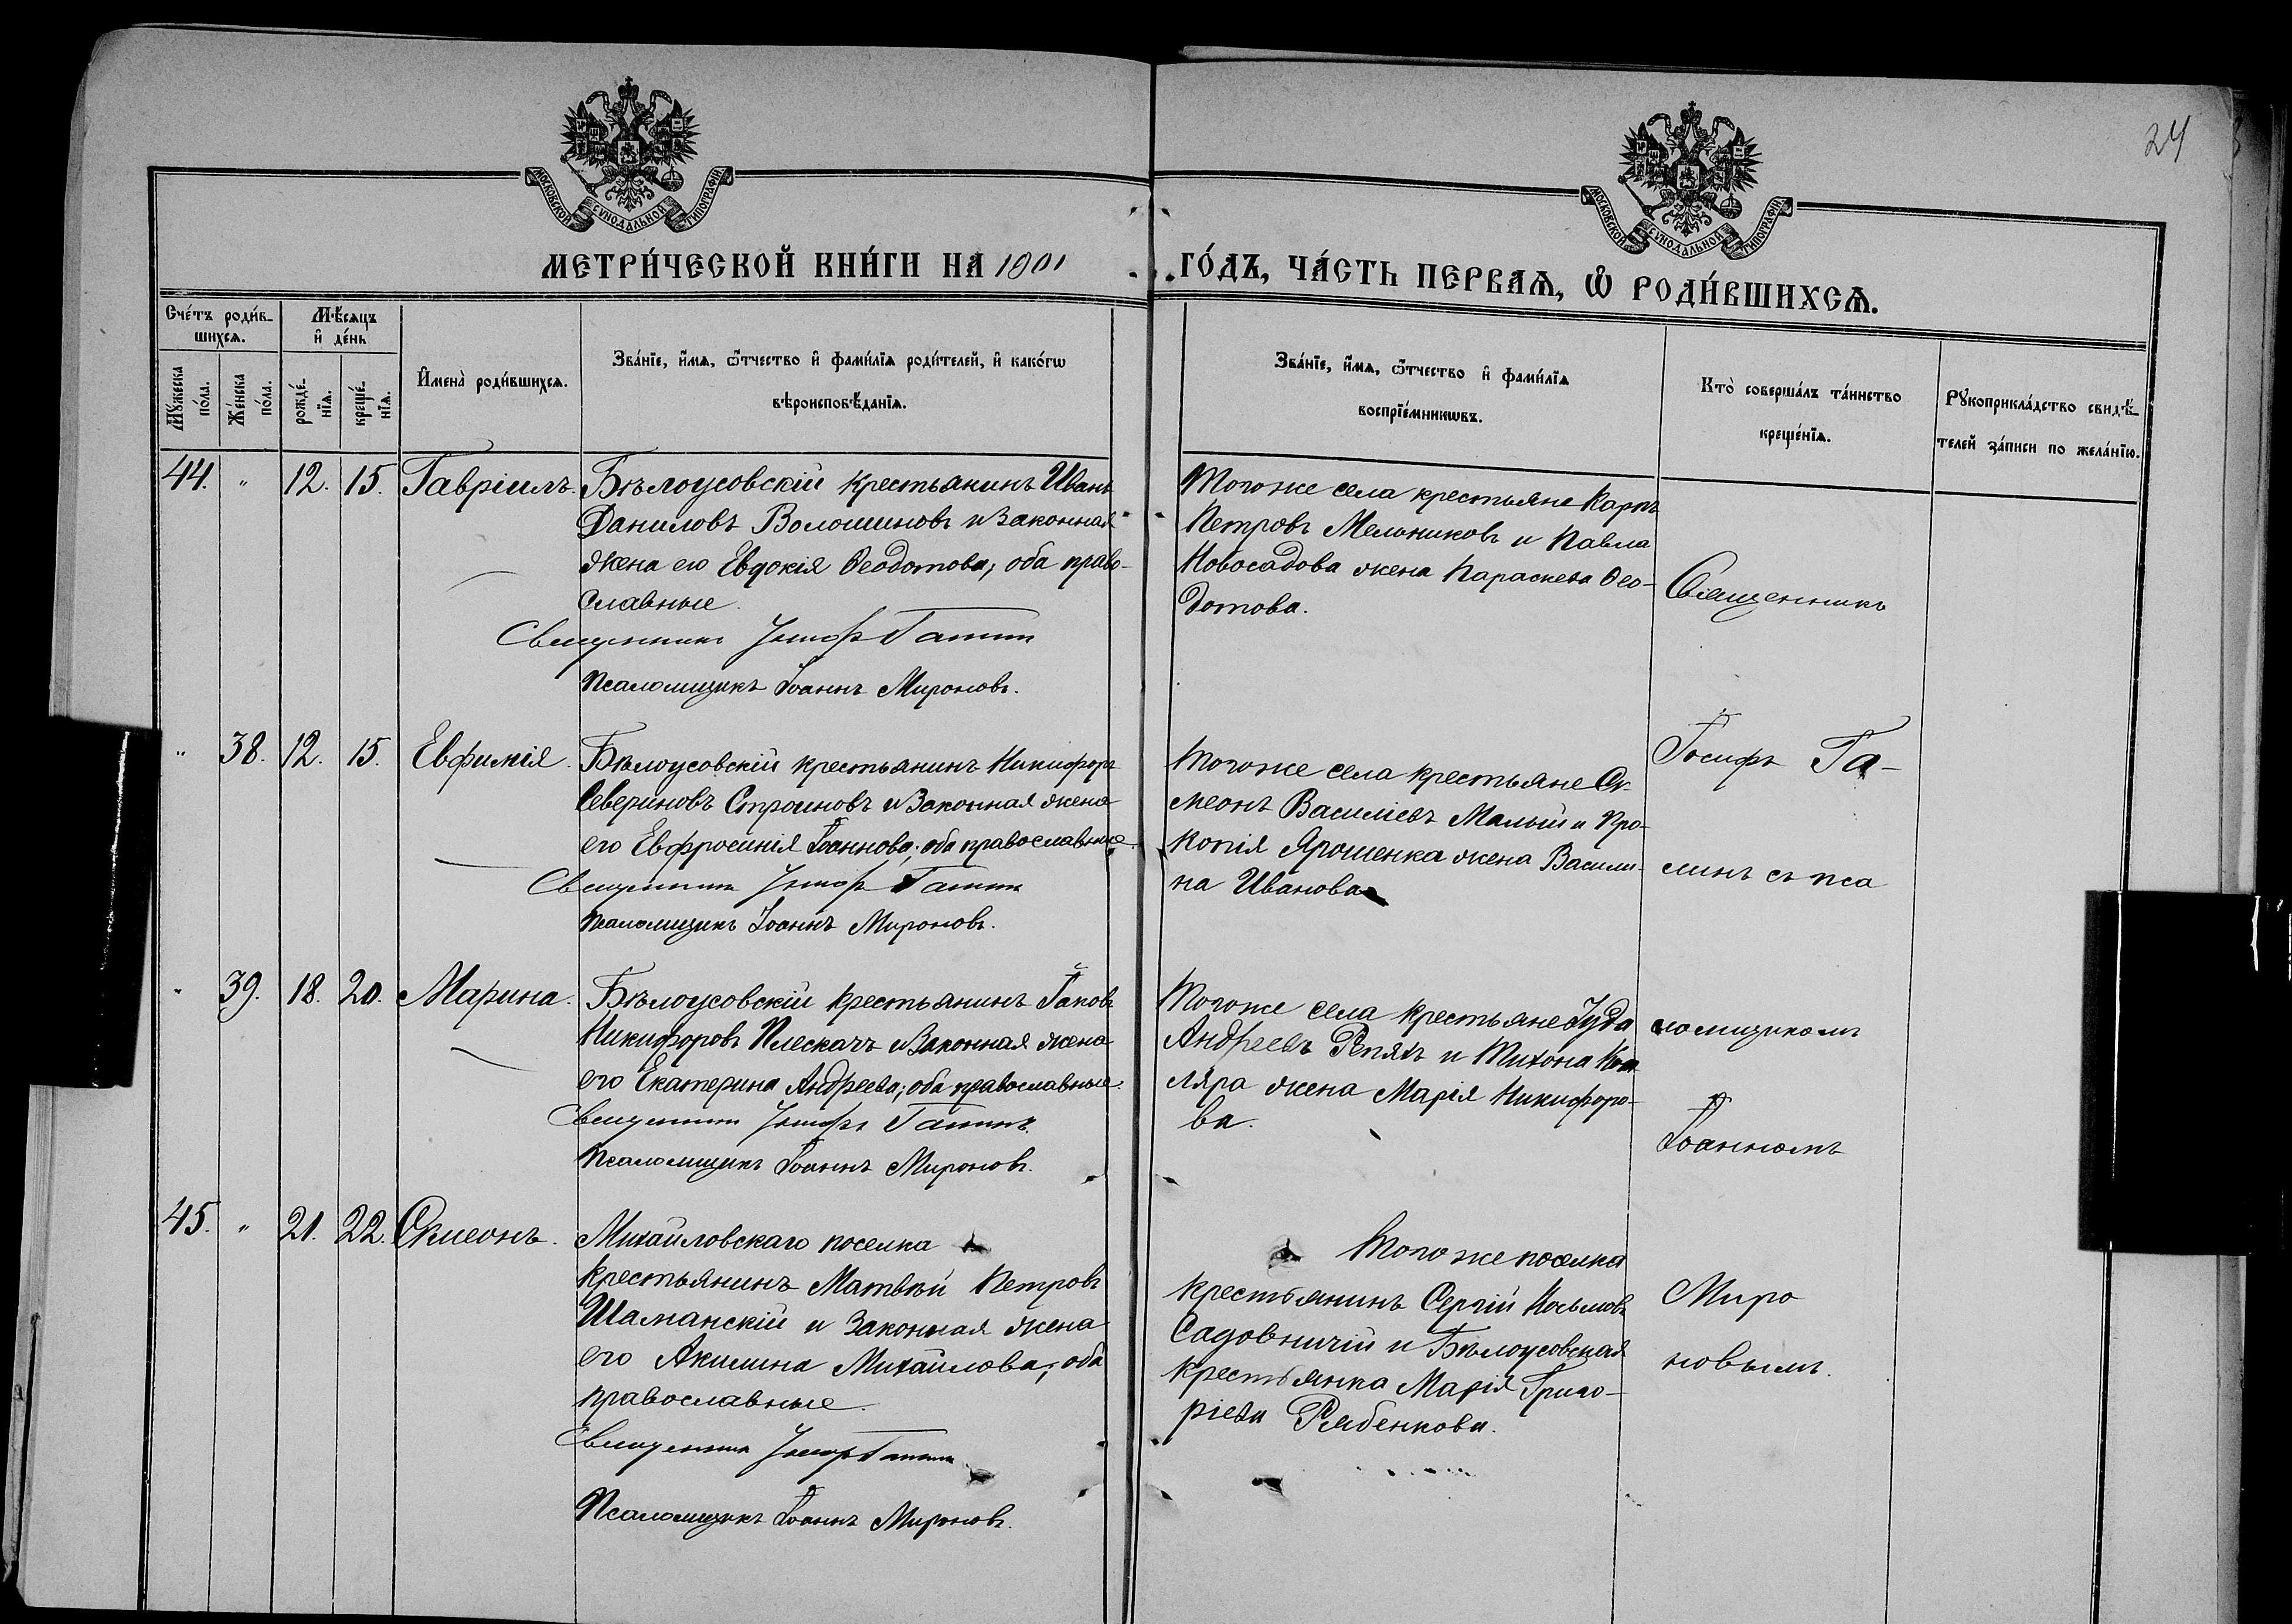 24
МОСКОВСКОЙ СѴНОДАЛЬНОЙ ТИПОГРАФІИ
МОСКОВСКОЙ СѴНОДАЛЬНОЙ ТИПОГРАФІИ
МЕТРИ́ЧЕСКОЙ КНИ́ГИ НА 1901 ГО́ДЪ, ЧА́СТЬ ПЕРВАѦ, Ѽ РОДИ́ВШИХСѦ.
Сче́тъ роди́в-
шихся.
Мѣ́сяцъ
и҆ де́нь
Мꙋ́жеска
по́ла.
Же́нска
по́ла.
рожде́-
нїя.
креще́-
нїя.
И҆мена̀ роди́вшихся.
Зва́нїе, и҆́мя, ѻ҆́тчество и҆ фами́лїя роди́телей, и҆ како́гѡ
вѣроисповѣ́данїя.
Зва́нїе, и҆́мя, ѻ҆́тчество и҆ фами́лїя
воспрїе́мникѡвъ.
Кто̀ соверша́лъ та́инство
креще́нїя.
Рꙋкоприкла́дство свидѣ́-
телей за́писи по жела́нїю.
44. " 12. 15. Гавріилъ.
Бѣлоусовскій крестьянинъ Иванъ
Даниловъ Волошиновъ и законная
жена его Евдокія Ѳеодотова; оба право-
славные.
Священникъ Іосифъ Гапинъ
Псаломщикъ Іоаннъ Мироновъ.
Тогоже села крестьяне Карпъ
Петровъ Мельниковъ и Павла
Новосадова жена Параскева Ѳео-
дотова.
" 38. 12. 15. Евфимія.
Бѣлоусовскій крестьянинъ Никифоръ
Севериновъ Строиновъ и законная жена
его Евфросинія Іоаннова; оба православные.
Священникъ Іосифъ
Псаломщикъ Іоаннъ Мироновъ.
Тогоже села крестьяне Си-
меонъ Василіевъ Малый и Про-
копія Ярошенка жена Васили-
на Иванова
" 39. 18. 20. Марина.
Бѣлоусовскій крестьянинъ Іаковъ
Никифоровъ Плескачъ и законная жена
его Екатерина Андреева; оба православные.
Священникъ Іосифъ
Псаломщикъ Іоаннъ Мироновъ.
Тогоже села крестьяне Іуда
Андреевъ Репяхъ и Тихона
ляра жена Марія Никифоро-
ва.
45. " 21. 22. Симеонъ.
Михайловскаго поселка
крестьянинъ Матвѣй Петровъ
Шаманскій и законная жена
его Акилина Михайлова; оба
православные.
Священникъ Іосифъ
Псаломщикъ Іоаннъ Мироновъ.
Тогоже поселка
крестьянинъ Сергій Косьмовъ
Садовничій и Бѣлоусовская
крестьянка Марія Григо-
ріева Рябенкова.
Священникъ
Іосифъ Га-
линъ съ пса
ломщикомъ
Іоанномъ
Миро
новымъ.